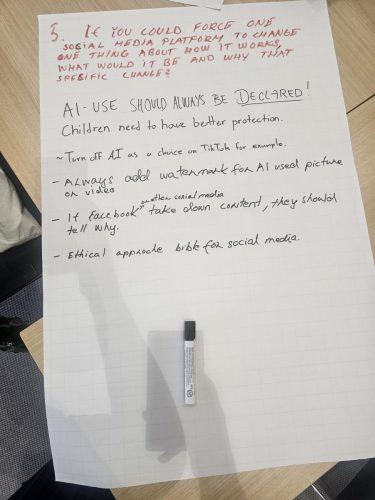 5. If you could force one
social media platform to change
one thing about how it works,
what would it be and why that
spesific change?
AI-USE SHOULD ALWAYS BE DECLARED!
Children need to have better protection.
~ Turn off AI as a choice on TikTok for example.
- Always add watermark for AI used picture
or video
or other social media
- If facebook take down content, they should
tell why.
- Ethical approche bible for social media.